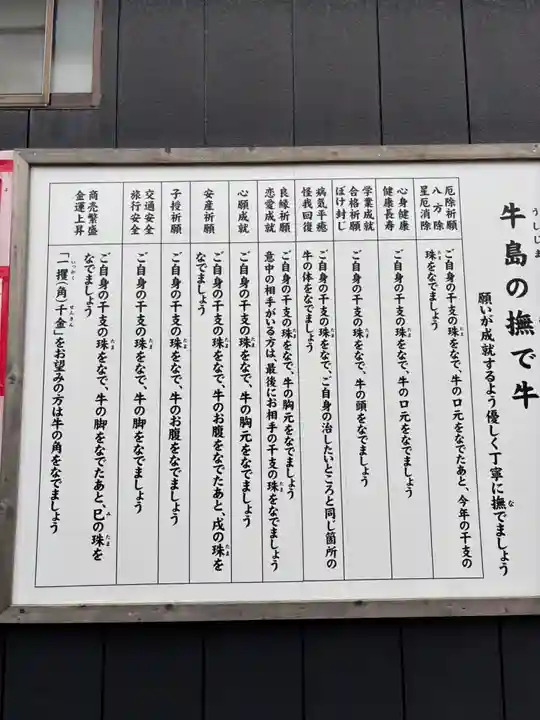 牛島の撫で牛
うしじま
願いが成就するよう優しく丁寧に撫でましょう
な
厄除祈願
八方除
星厄消除
ご自身の干支の珠をなで、牛の口元をなでたあと、今年の干支の
たま
珠をなでましょう
たま
心身健康
健康長寿
ご自身の干支の珠をなで、牛の口元をなでましょう
たま
学業成就
合格祈願
ぼけ封じ
ご自身の干支の珠をなで、牛の頭をなでましょう
たま
病気平癒
怪我回復
ご自身の干支の珠をなで、ご自身の治したいところと同じ箇所の
たま
牛の体をなでましょう
良縁祈願
恋愛成就
ご自身の干支の珠をなで、牛の胸元をなでましょう
たま
意中の相手がいる方は、最後にお相手の干支の珠をなでましょう
たま
心願成就
ご自身の干支の珠をなで、牛の胸元をなでましょう
たま
安産祈願
ご自身の干支の珠をなで、牛のお腹をなでたあと、戌の珠を
たま
たま
なでましょう
子授祈願
ご自身の干支の珠をなで、牛のお腹をなでましょう
たま
交通安全
旅行安全
ご自身の干支の珠をなで、牛の脚をなでましょう
たま
商売繁盛
金運上昇
ご自身の干支の珠をなで、牛の脚をなでたあと、巳の珠を
たま
み
たま
なでましょう
「一攫(角)千金」をお望みの方は牛の角をなでましょう
いっかく
せんきん